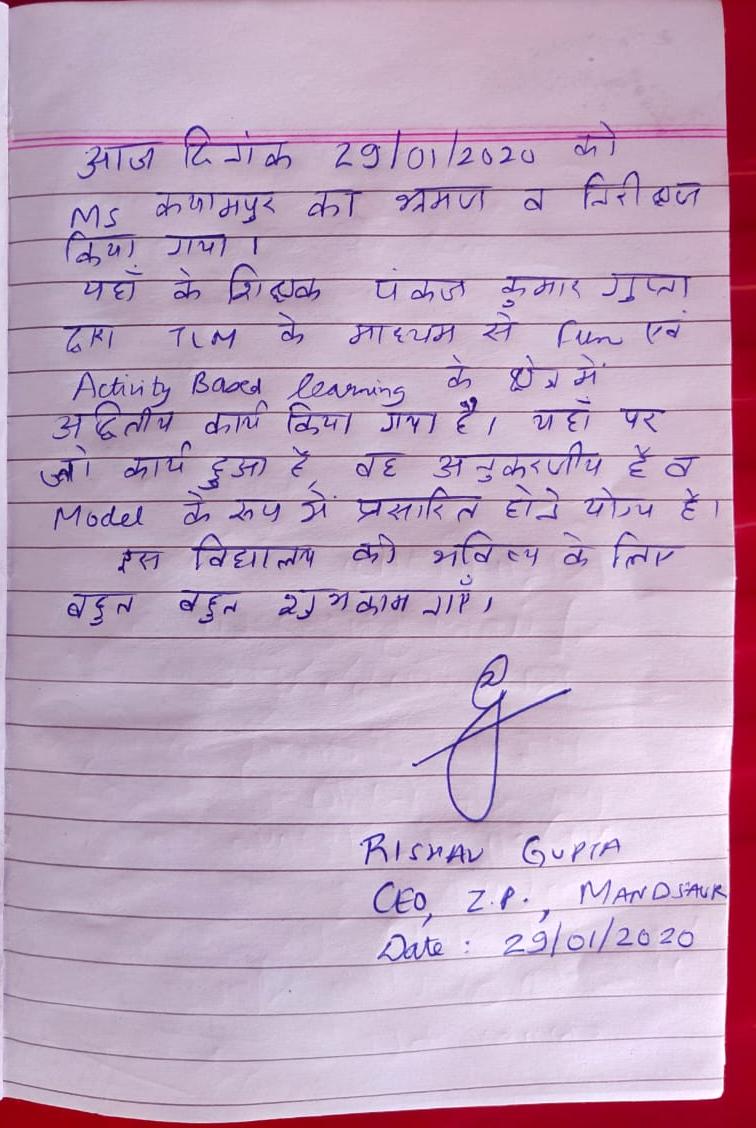 आज दिनांक 29/01/2020 को
MS कयामपुर का भ्रमण व निरीक्षण
किया गया।
यहाँ के शिक्षक पंकज कुमार गुप्ता
द्वारा TLM के माध्यम से Fun एवं
Activity Based learning के क्षेत्र में
अद्वितीय कार्य किया गया है। यहाँ पर
जो कार्य हुआ है, वह अनुकरणीय है व
Model के रूप में प्रसारित होने योग्य है।
इस विद्यालय को भविष्य के लिए
बहुत बहुत शुभकामनाएँ।
RISHAV GUPTA
CEO, Z.P., MANDSAUR
Date : 29/01/2020